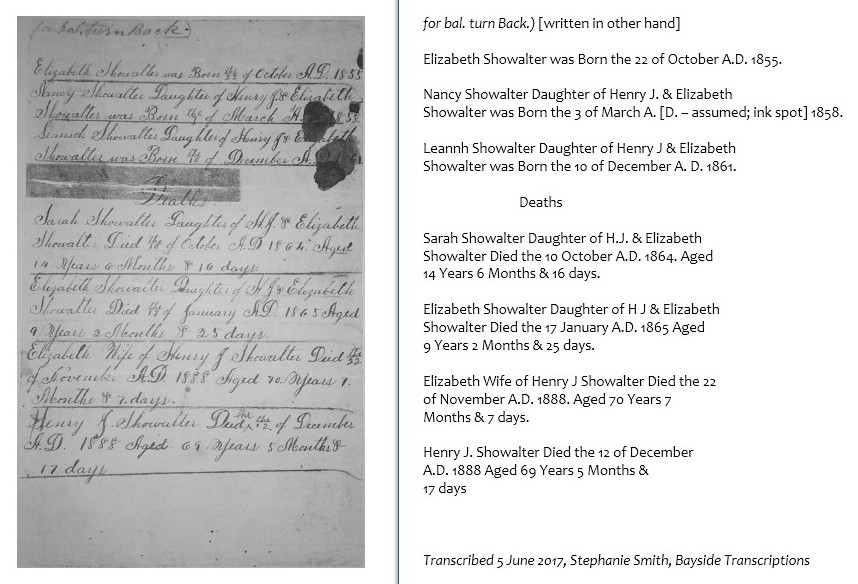 for bal. turn Back.)
Elizabeth Showalter was Born the 22 of October A.D. 1855
Nancy Showalter Daughter of Henry J & Elizabeth
Showalter was Born the 3 of March A. 1858
Showalter Daughter of Henry J & Elizabeth
Showalter was Born the 10 of December A.
Deaths
Sarah Showalter Daughter of H.J. & Elizabeth
Showalter Died the 10 of October A.D 1864. Aged
14 Years 6 Months & 16 days.
Elizabeth Showalter Daughter of H J & Elizabeth
Showalter Died the 17 of January A.D. 1865 Aged
9 Years 2 Months & 25 days.
Elizabeth Wife of Henry J Showalter Died the 22
of November A.D. 1888 Aged 70 Years 7
Months & 7 days.
Henry J. Showalter Died the 12 of December
A.D. 1888 Aged 69 Years 5 Months &
17 days
for bal. turn Back.) [written in other hand]
Elizabeth Showalter was Born the 22 of October A.D. 1855.
Nancy Showalter Daughter of Henry J. & Elizabeth
Showalter was Born the 3 of March A. [D. – assumed; ink spot] 1858.
Leannh Showalter Daughter of Henry J & Elizabeth
Showalter was Born the 10 of December A. D. 1861.
Deaths
Sarah Showalter Daughter of H.J. & Elizabeth
Showalter Died the 10 October A.D. 1864. Aged
14 Years 6 Months & 16 days.
Elizabeth Showalter Daughter of H J & Elizabeth
Showalter Died the 17 January A.D. 1865 Aged
9 Years 2 Months & 25 days.
Elizabeth Wife of Henry J Showalter Died the 22
of November A.D. 1888. Aged 70 Years 7
Months & 7 days.
Henry J. Showalter Died the 12 of December
A.D. 1888 Aged 69 Years 5 Months &
17 days
Transcribed 5 June 2017, Stephanie Smith, Bayside Transcriptions